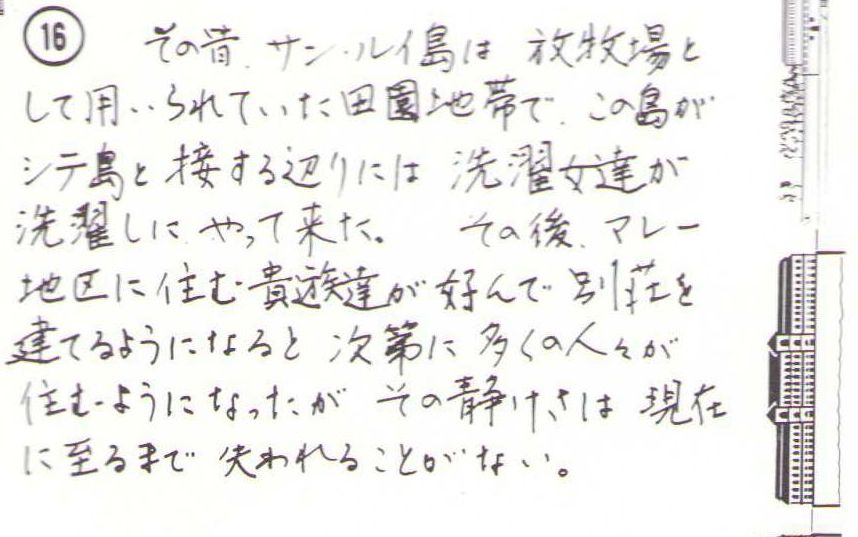 16 その昔、サン・ルイ島は 放牧場と
して用いられていた田園地帯で、この島が
シテ島と接する辺りには 洗濯女達が
洗濯しに やって来た。 その後、マレー
地区に住む貴族達が好んで別荘を
建てるようになると 次第に多くの人々が
住むようになったが その静けさは 現在
に至るまで 失われることがない。